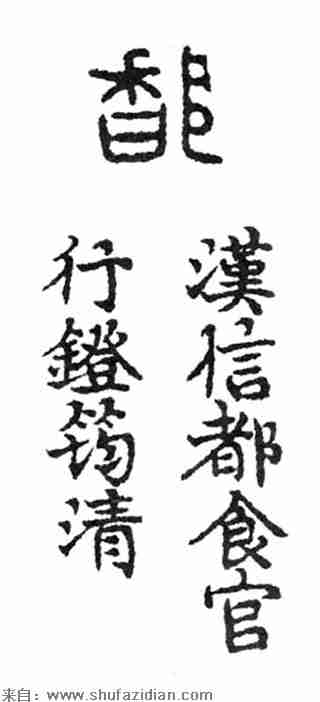 都
漢信都食官
行鐙筠清
来自：www.shufazidian.com